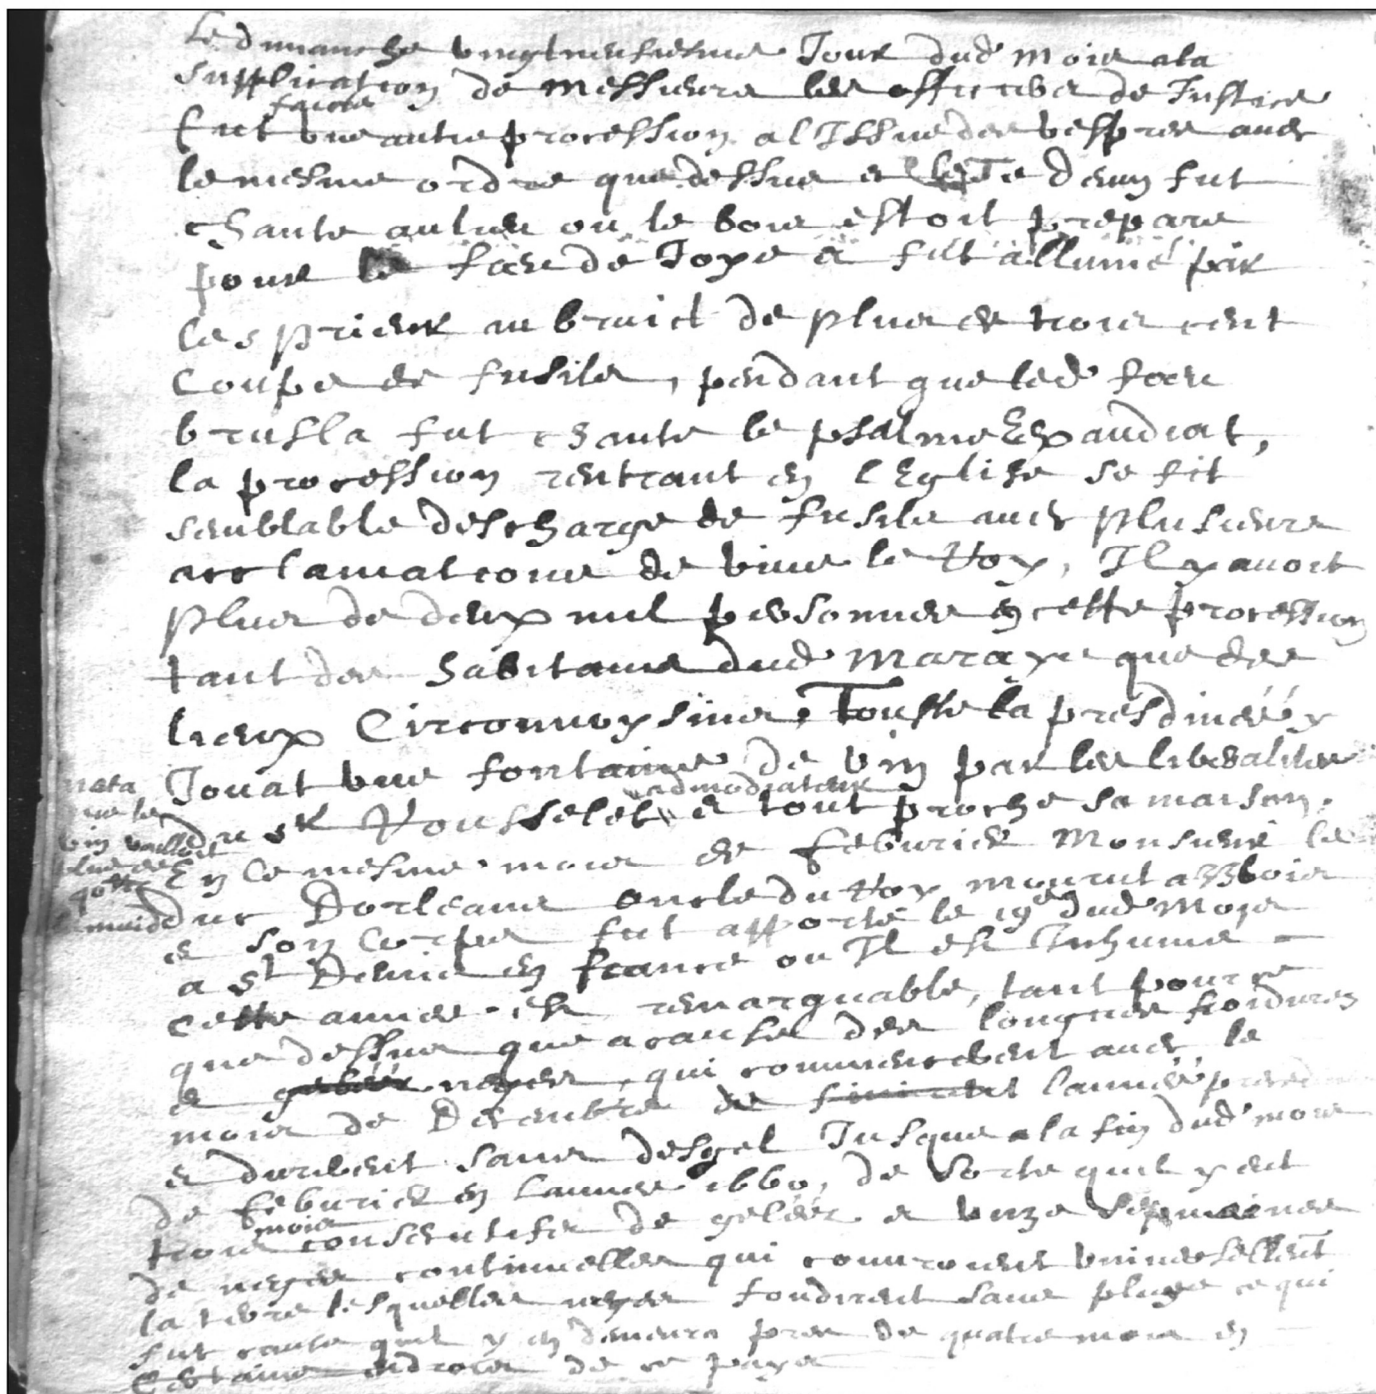 Le dimanche vingtneufiesme Jour dud mois a la
supplication de messieurs les officiers de Justice
fut faicte une autre procession a l Issue des vespres avec
le mesme ordre que dessus et le Te deum fut
chante au lieu ou le bois estoit prepare
pour le feu de Joye et fut allumé par
les prieur au bruict de plus de trois cent
Coups de fusils, pendant que led feu
brusla fut chante le psalme Exaudiat,
la procession rentrant en l Eglise se fit
semblable descharge de fusils avec plusieurs
acclamations de vive le Roy, Il y avoit
plus de deux mil personnes en cette procession
tant des habitans dud Maraye que des
lieux Circonvoysins, Toutte la presdineé y
Jouat une fontaine de vin par les liberalites
du sr Rousselet admodiateur et tout proche sa maison.
nota que le vin valloit plus de muid
En ce mesme mois de febvrier Monsieur le
duc Dorleans oncle du Roy mourut a Blois
et son Corps fut apporté le 19e dud Mois
a St Denis en france ou Il est Inhumé
Cette annee est remarquable, tant pour ce
que dessus que a cause des longues froidures
et neges, qui commencerent avec le
mois de Decembre de lanneé precedente
et durerent sans desgel Jusque a la fin dud mois
de febvrier en lannee 1660, de sorte quil y eut
trois mois consecutifs de geleés et unze sepmaines
de neges continuelles qui couvroient universellemt
la terre lesquelles neges fondirent sans pluye ce qui
fut cause quil y en demeura pres de quatre mois en
Certains endrois de ce pays